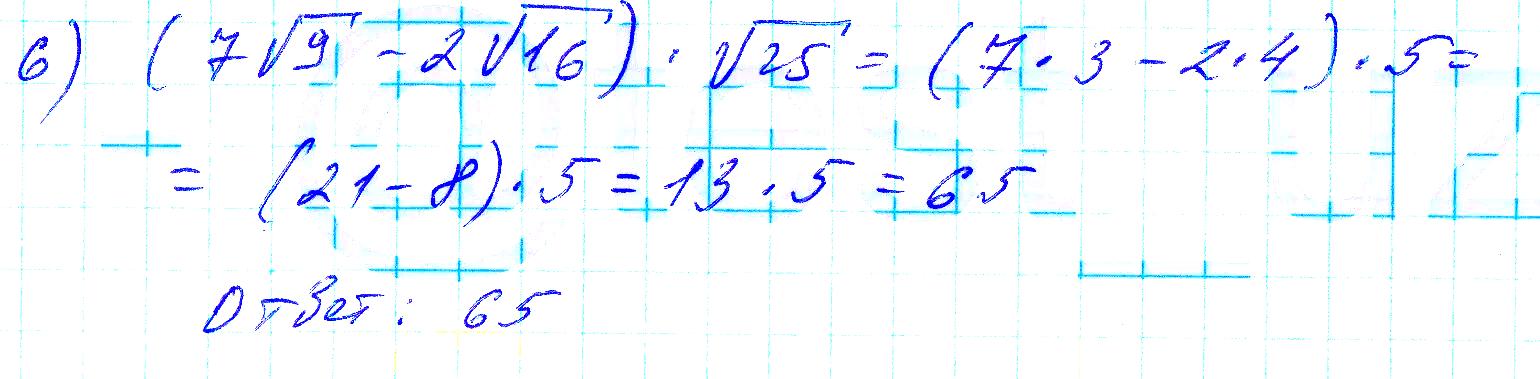 6) (7√9 - 2√16) · √25 = (7 · 3 - 2 · 4) · 5 =
= (21 - 8) · 5 = 13 · 5 = 65
Ответ: 65